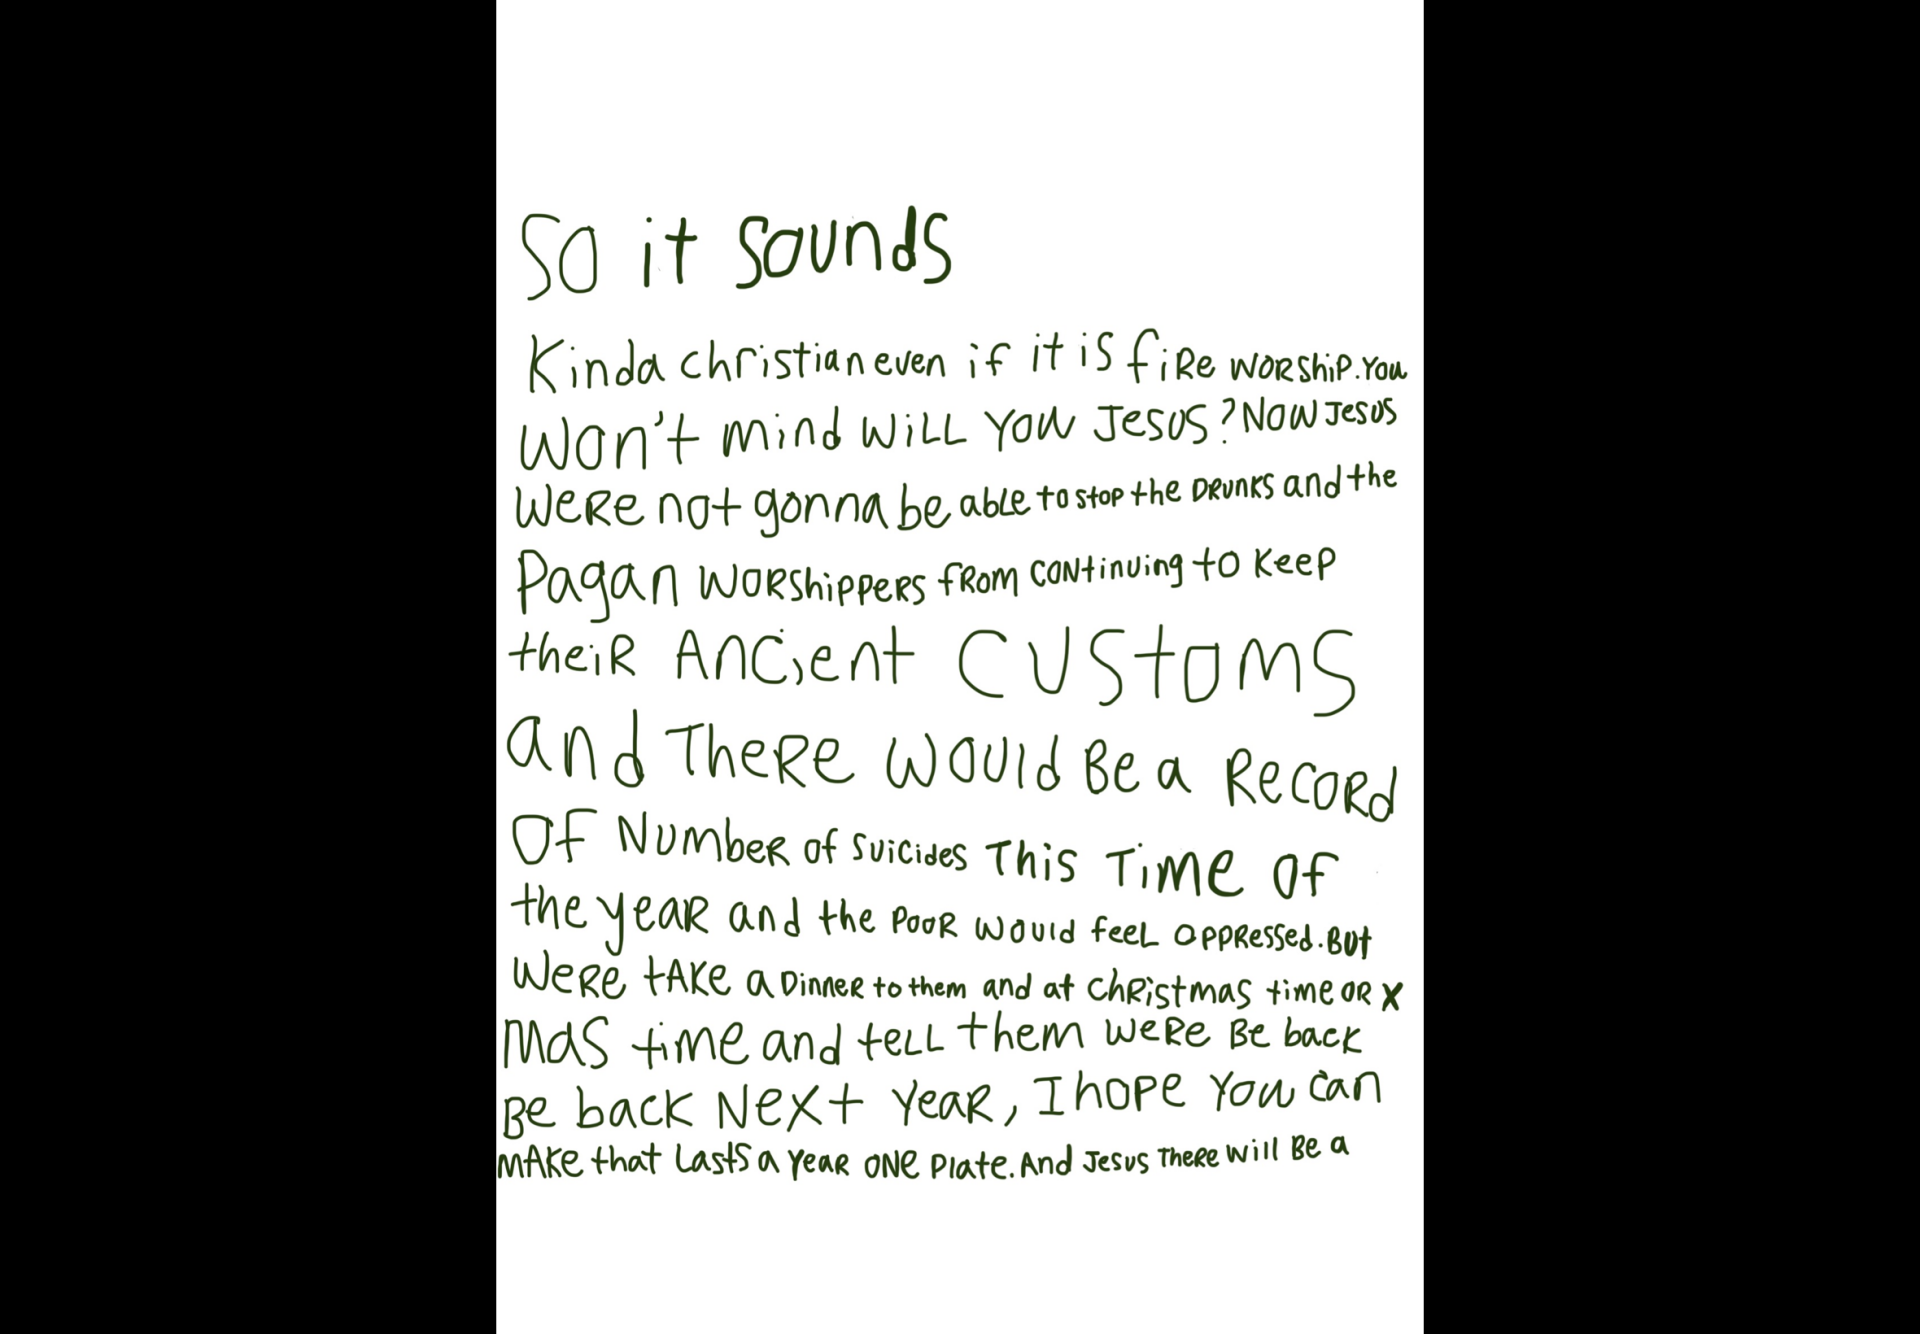 So it sounds
Kinda christian even if it is fiRe WORShiP. You
Won't mind WiLL YOU Jesus? NOW Jesus
WeRe not gonna be abLe to stop the DRUNKS and the
Pagan WORShiPPeRS fROM CONtinuing to Keep
theiR ANCient CUStOMS
and TheRe WOUld Be a ReCORd
OF NUMbeR of SuiCides This TiMe Of
the yeaR and the POOR WOUld feeL OPPRessed. But
WeRe tAKe a DinneR to them and at ChRistmas time OR X
Mas time and teLL them weRe Be back
Be back NeXt YeaR, I hoPe YOU Can
MAKe that Lasts a YeaR ONe Plate. And Jesus TheRe Will Be a